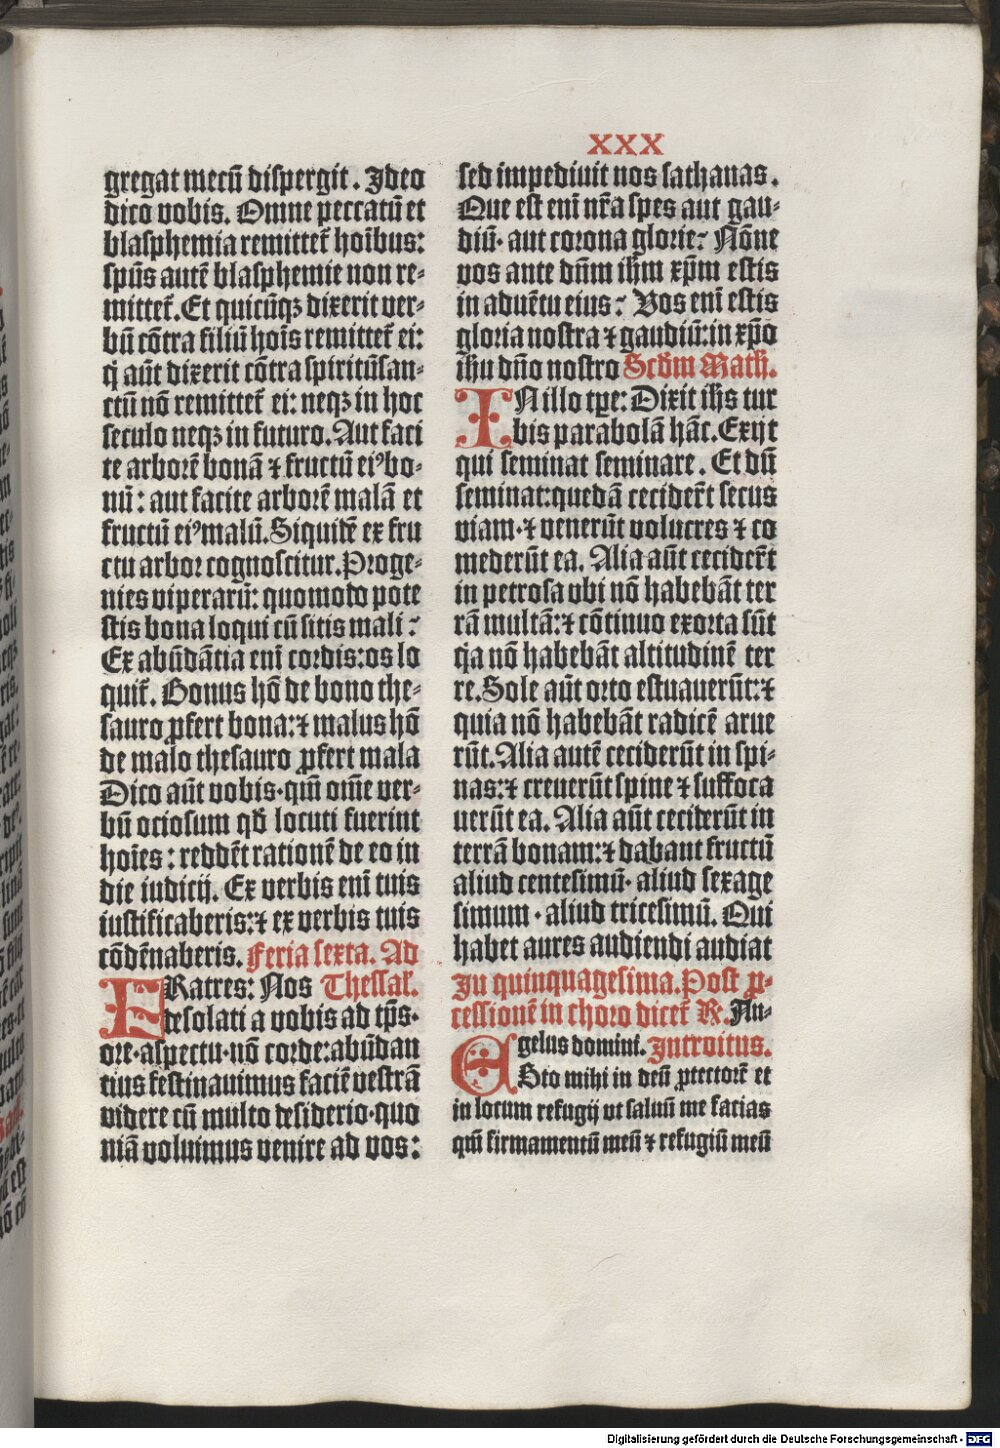 XXX
gregat mecū dispergit. Ideo
dico vobis. Omne peccatū et
blasphemia remittet̄ hoībus:
spūs autē blasphemie non re-
mittet̄. Et quicūqꝫ dixerit ver-
bū cōtra filiū hoīs remittet̄ ei:
q̇ aūt dixerit cōtra spiritūsan-
ctū nō remittet̄ ei: neqꝫ in hoc
seculo neqꝫ in futuro. Aut faci
te arborē bonā ⁊ fructū eiꝰ bo-
nū: aut facite arborē malā et
fructū eiꝰ malū. Siquidē ex fru
ctu arbor cognoscitur. Proge-
nies viperarū: quomodo pote
stis bona loqui cū sitis mali?
Ex abūdātia enī cordis: os lo
quit̄. Bonus hō de bono the-
sauro ꝓfert bona: ⁊ malus hō
de malo thesauro ꝓfert mala
Dico aūt vobis. qm̄ om̄e ver-
bū ociosum qd̄ locuti fuerint
hoīes: reddēt rationē de eo in
die iudicij. Ex verbis enī tuis
iustificaberis: ⁊ ex verbis tuis
cōdēnaberis. Feria sexta. Ad
FRatres: Nos Thessal̄.
desolati a vobis ad tp̄s.
ore. aspectu. nō corde: abūdan
tius festinauimus faciē vestrā
videre cū multo desiderio. quo
niā voluimus venire ad vos:
sed impediuit nos sathanas.
Que est enī nr̄a spes aut gau-
diū. aut corona glorie? Nōne
vos ante dn̄m ihm̄ xp̄m estis
in aduētu eius? Vos enī estis
gloria nostra ⁊ gaudiū: in xp̄o
ih̄u dn̄o nostro Scd̄m Math̄.
IN illo tp̄e: Dixit ih̄s tur
bis parabolā hāc. Exijt
qui seminat seminare. Et dū
seminat: quedā cecider̄t secus
viam. ⁊ venerūt volucres ⁊ co
mederūt ea. Alia aūt cecider̄t
in petrosa vbi nō habebāt ter
rā multā: ⁊ cōtinuo exorta sūt
q̇a nō habebāt altitudinē ter
re. Sole aūt orto estuauerūt: ⁊
quia nō habebāt radicē arue
rūt. Alia autē ceciderūt in spi-
nas: ⁊ creuerūt spine ⁊ suffoca
uerūt ea. Alia aūt ceciderūt in
terrā bonam: ⁊ dabant fructū
aliud centesimū. aliud sexage
simum. aliud tricesimū. Qui
habet aures audiendi audiat
In quinquagesima. Post ꝓ-
cessionē in choro dicet̄ ℟. An-
gelus domini. Introitus.
ESto mihi in deū ꝓtectorē et
in locum refugij vt saluū me facias
qm̄ firmamentū meū ⁊ refugiū meū
Digitalisierung gefördert durch die Deutsche Forschungsgemeinschaft - DFG